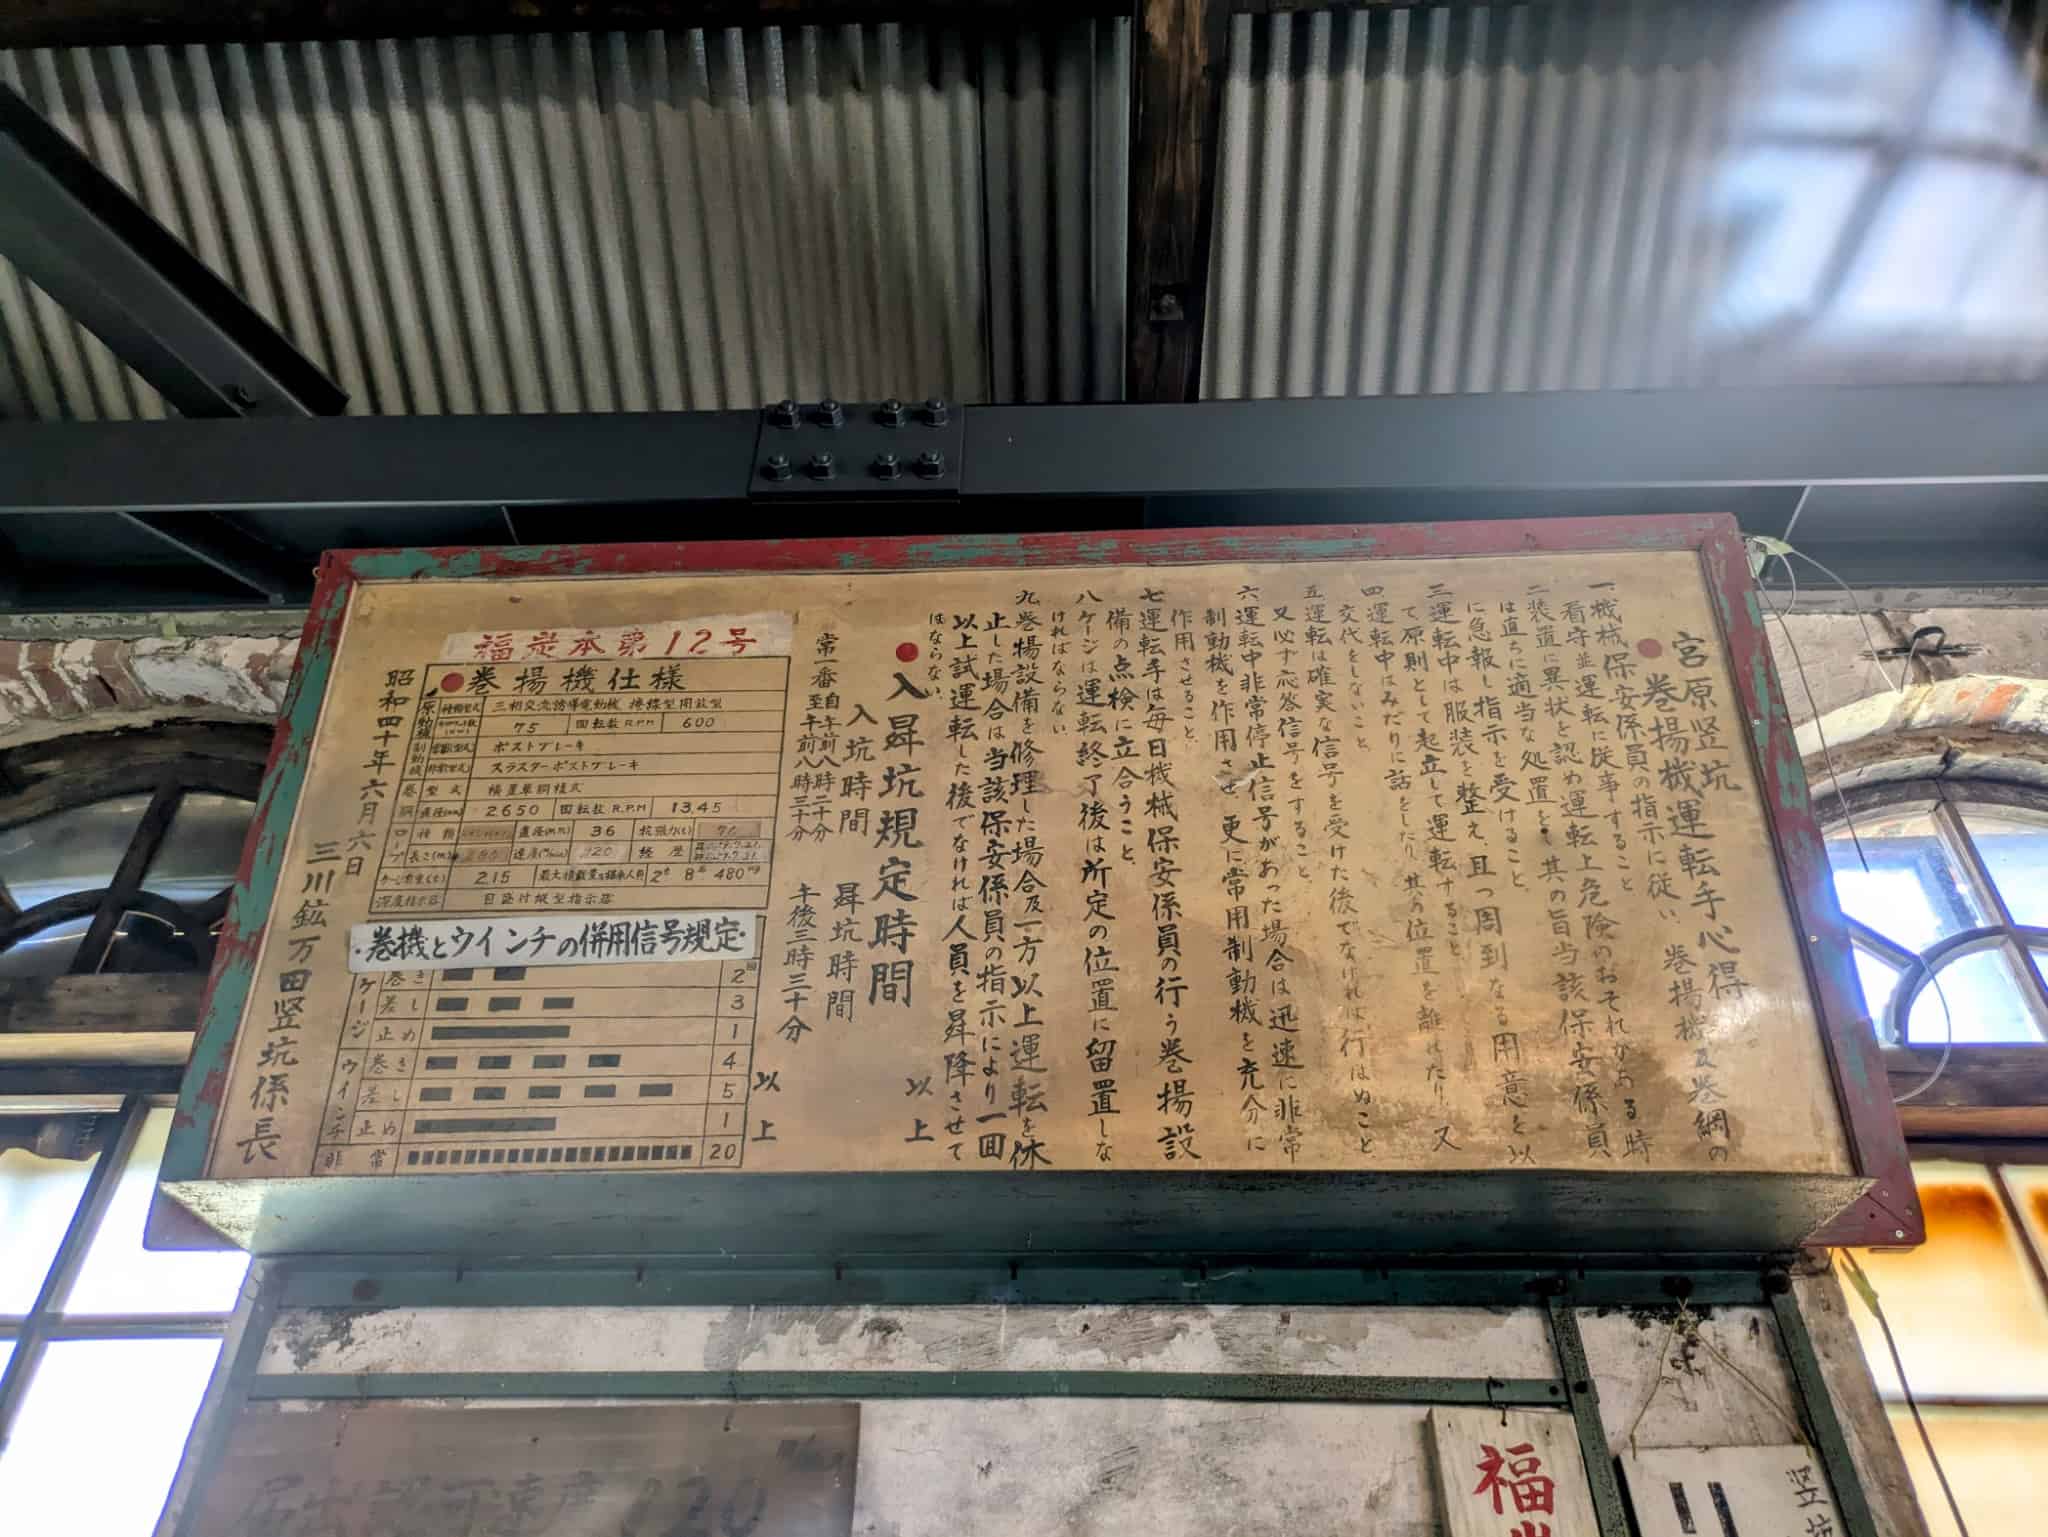 宮原竪坑
巻揚機運転手心得
一、機械保安係員の指示に従い、巻揚機及巻綱の
看守並運転に従事すること
二、装置に異状を認め運転上危険のおそれがある時
は直ちに適当な処置をし其の旨当該保安係員
に急報し指示を受けること
三、運転中は服装を整え、且つ周到なる用意を以
て、原則として起立して運転すること
四、運転中はみだりに話をしたり、其の位置を離れたり、又
交代をしないこと
五、運転は確実な信号を受けた後でなければ行はぬこと
又必ず応答信号をすること
六、運転中非常停止信号があった場合は迅速に非常
制動機を作用させ、更に常用制動機を充分に
作用させること、
七、運転手は毎日機械保安係員の行う巻揚設
備の点検に立合うこと、
八、ケージは運転終了後は所定の位置に留置しな
ければならない、
九、巻揚設備を修理した場合及一方以上運転を休
止した場合は当該保安係員の指示により一回
以上試運転した後でなければ人員を昇降させて
はならない、
以上
入昇坑規定時間
入坑時間 昇坑時間
常一番 自午前八時二十分 至午前八時三十分 午後三時三十分
以上
福炭本第12号
巻揚機仕様
原動機 種類型式 三相交流誘導電動機 捲線型開放型
75 回転数R.P.M 600
制動機 常用型式 ポストブレーキ
非常型式 スラスターポストブレーキ
巻型式 横置単胴複式
胴 直径(mm) 2650 回転数R.P.M 13.45
ロープ 種類 直径(mm) 36 抗張力(t)
長さ(m) 速度(m/min) 220 経歴
ケージ自重(t) 2.15 8名 480kg
深度指示器 目盛付縦型指示器
・巻機とウインチの併用信号規定・
ケージ 巻き 2回
差し 3
止め 1
ウインチ 巻き 4
差し 5
止め 1
非常 20
昭和四十年六月六日
三川鉱万田竪坑係長
福
竪坑